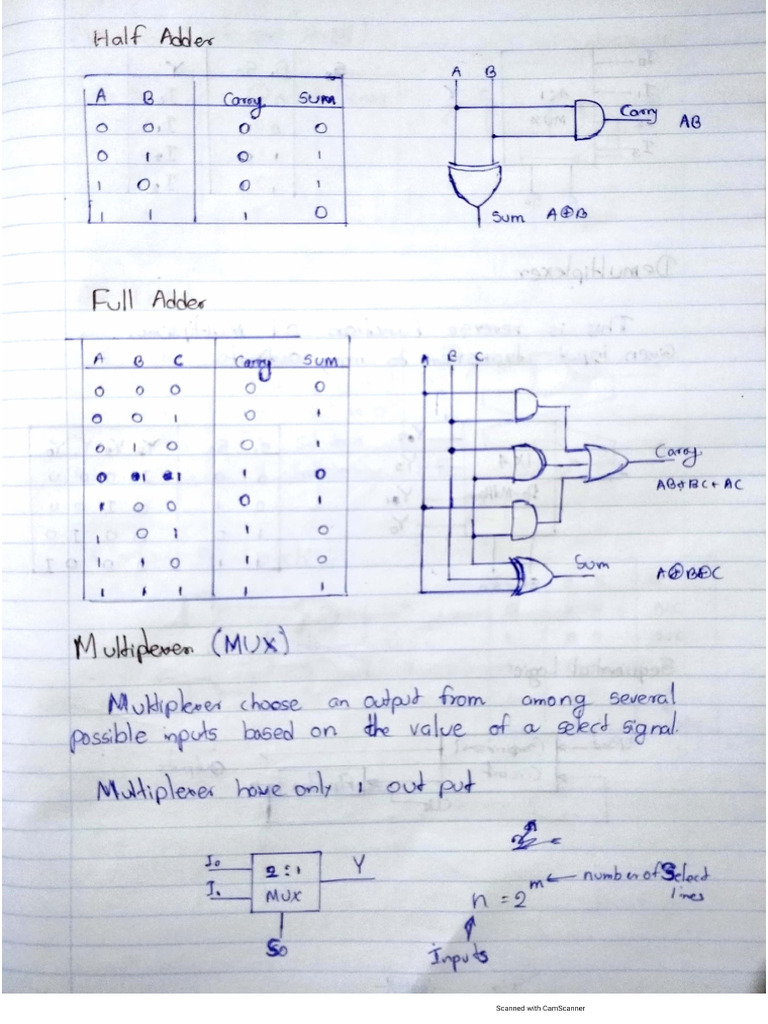 Half Adder
A B Carry Sum
0 0 0 0
0 1 0 1
1 0 0 1
1 1 1 0
A B
Carry AB
Sum A⊕B
Full Adder
A B C Carry Sum
0 0 0 0 0
0 0 1 0 1
0 1 0 0 1
0 1 1 1 0
1 0 0 0 1
1 0 1 1 0
1 1 0 1 0
1 1 1 1 1
A B C
Carry
AB+BC+AC
Sum A⊕B⊕C
Multiplexer (MUX)
Multiplexer choose an output from among several
possible inputs based on the value of a select signal.
Multiplexer have only 1 out put
I0
I1
2:1
MUX
Y
S0
n = 2^m ← number of Select
lines
Inputs
Scanned with CamScanner